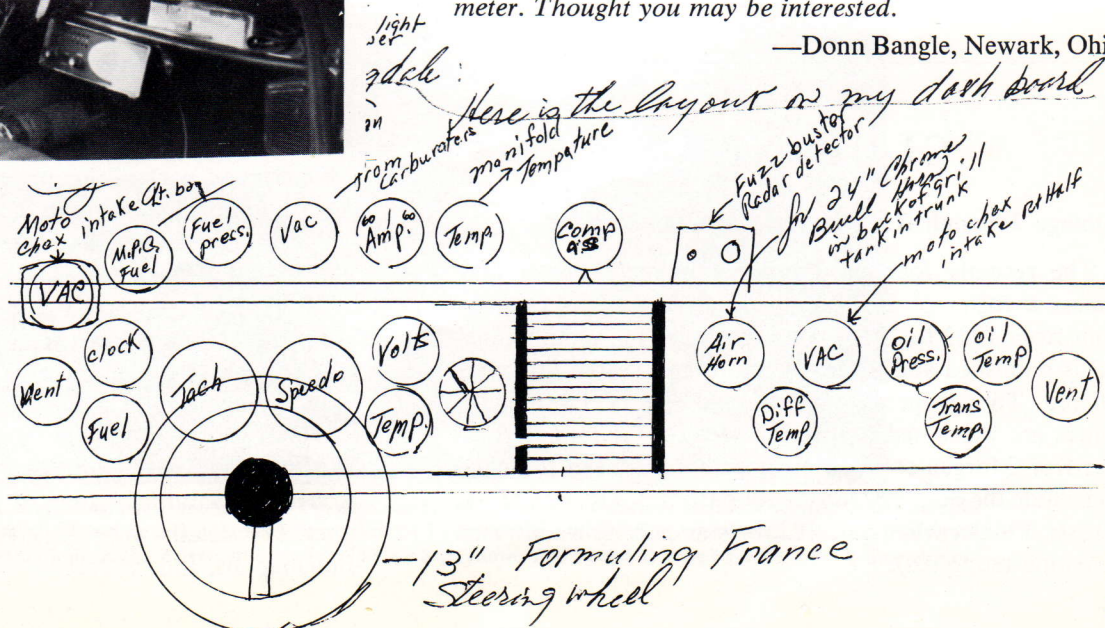 meter. Thought you may be interested.
—Donn Bangle, Newark, Ohi
light
dale:
Here is the layout on my dash board
from
Carburaters
manifold
Tempature
Fuzz buster
Radar detector
for 24" Chrome
Bull Horn
in back of grill
tank in trunk
moto chex
intake Rt Half
Moto
chex
intake
VAC
M.P.G.
Fuel
Fuel
press.
Vac
60 60
Amp.
Temp.
Comp
ass
Vent
clock
Fuel
Tach
Speedo
Volts
Temp.
Air
Horn
VAC
Oil
Press.
Oil
Temp
Diff
Temp
Trans
Temp.
Vent
—13" Formuling France
Steering wheel